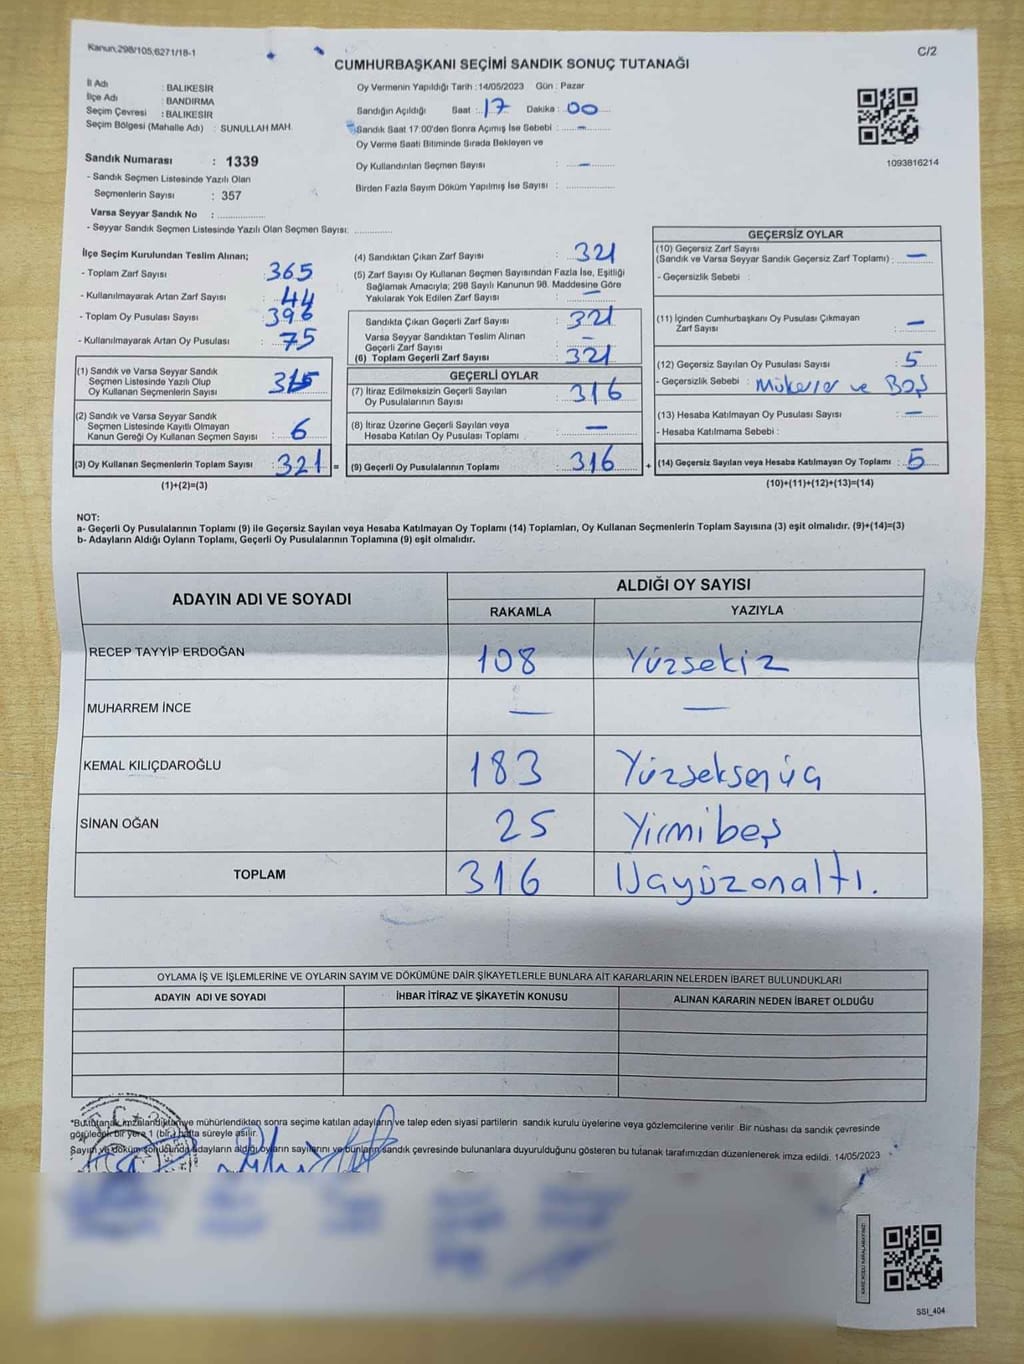 Kanun,298/105,6271/18-1
C/2
CUMHURBAŞKANI SEÇİMİ SANDIK SONUÇ TUTANAĞI
İl Adı : BALIKESİR
İlçe Adı : BANDIRMA
Seçim Çevresi : BALIKESİR
Seçim Bölgesi (Mahalle Adı) : SUNULLAH MAH.
Sandık Numarası : 1339
- Sandık Seçmen Listesinde Yazılı Olan
Seçmenlerin Sayısı : 357
Varsa Seyyar Sandık No :
- Seyyar Sandık Seçmen Listesinde Yazılı Olan Seçmen Sayısı:
Oy Vermenin Yapıldığı Tarih : 14/05/2023 Gün : Pazar
Sandığın Açıldığı Saat : 17 Dakika : 00
Sandık Saat 17:00'den Sonra Açımış İse Sebebi : –
Oy Verme Saati Bitiminde Sırada Bekleyen ve
Oy Kullandırılan Seçmen Sayısı : –
Birden Fazla Sayım Döküm Yapılmış İse Sayısı :
1093816214
İlçe Seçim Kurulundan Teslim Alınan;
- Toplam Zarf Sayısı : 365
- Kullanılmayarak Artan Zarf Sayısı : 44
- Toplam Oy Pusulası Sayısı : 396
- Kullanılmayarak Artan Oy Pusulası : 75
(1) Sandık ve Varsa Seyyar Sandık
Seçmen Listesinde Yazılı Olup
Oy Kullanan Seçmenlerin Sayısı : 315
(2) Sandık ve Varsa Seyyar Sandık
Seçmen Listesinde Kayıtlı Olmayan
Kanun Gereği Oy Kullanan Seçmen Sayısı : 6
(3) Oy Kullanan Seçmenlerin Toplam Sayısı : 321 =
(1)+(2)=(3)
(4) Sandıktan Çıkan Zarf Sayısı : 321
(5) Zarf Sayısı Oy Kullanan Seçmen Sayısından Fazla İse, Eşitliği
Sağlamak Amacıyla; 298 Sayılı Kanunun 98. Maddesine Göre
Yakılarak Yok Edilen Zarf Sayısı : –
Sandıkta Çıkan Geçerli Zarf Sayısı : 321
Varsa Seyyar Sandıktan Teslim Alınan
Geçerli Zarf Sayısı : –
(6) Toplam Geçerli Zarf Sayısı : 321
GEÇERLİ OYLAR
(7) İtiraz Edilmeksizin Geçerli Sayılan
Oy Pusulalarının Sayısı : 316
(8) İtiraz Üzerine Geçerli Sayılan veya
Hesaba Katılan Oy Pusulası Toplamı : –
(9) Geçerli Oy Pusulalarının Toplamı : 316 +
GEÇERSİZ OYLAR
(10) Geçersiz Zarf Sayısı
(Sandık ve Varsa Seyyar Sandık Geçersiz Zarf Toplamı) : –
- Geçersizlik Sebebi :
(11) İçinden Cumhurbaşkanı Oy Pusulası Çıkmayan
Zarf Sayısı : –
(12) Geçersiz Sayılan Oy Pusulası Sayısı : 5
- Geçersizlik Sebebi : Mükerrer ve Boş
(13) Hesaba Katılmayan Oy Pusulası Sayısı : –
- Hesaba Katılmama Sebebi :
(14) Geçersiz Sayılan veya Hesaba Katılmayan Oy Toplamı : 5
(10)+(11)+(12)+(13)=(14)
NOT:
a- Geçerli Oy Pusulalarının Toplamı (9) ile Geçersiz Sayılan veya Hesaba Katılmayan Oy Toplamı (14) Toplamları, Oy Kullanan Seçmenlerin Toplam Sayısına (3) eşit olmalıdır. (9)+(14)=(3)
b- Adayların Aldığı Oyların Toplamı, Geçerli Oy Pusulalarının Toplamına (9) eşit olmalıdır.
ADAYIN ADI VE SOYADI ALDIĞI OY SAYISI
RAKAMLA YAZIYLA
RECEP TAYYİP ERDOĞAN 108 Yüzsekiz
MUHARREM İNCE – –
KEMAL KILIÇDAROĞLU 183 Yüzseksenüç
SİNAN OĞAN 25 Yirmibeş
TOPLAM 316 Üçyüzonaltı.
OYLAMA İŞ VE İŞLEMLERİNE VE OYLARIN SAYIM VE DÖKÜMÜNE DAİR ŞİKAYETLERLE BUNLARA AİT KARARLARIN NELERDEN İBARET BULUNDUKLARI
ADAYIN ADI VE SOYADI İHBAR İTİRAZ VE ŞİKAYETİN KONUSU ALINAN KARARIN NEDEN İBARET OLDUĞU
*Bu tutanak imzalandıktan ve mühürlendikten sonra seçime katılan adayların ve talep eden siyasi partilerin sandık kurulu üyelerine veya gözlemcilerine verilir .Bir nüshası da sandık çevresinde
görülecek bir yere 1 (bir) hafta süreyle asılır.
Sayım ve döküm sonucunda adayların aldığı oyların sayılarını ve bunların sandık çevresinde bulunanlara duyurulduğunu gösteren bu tutanak tarafımızdan düzenlenerek imza edildi. 14/05/2023
SSI_404